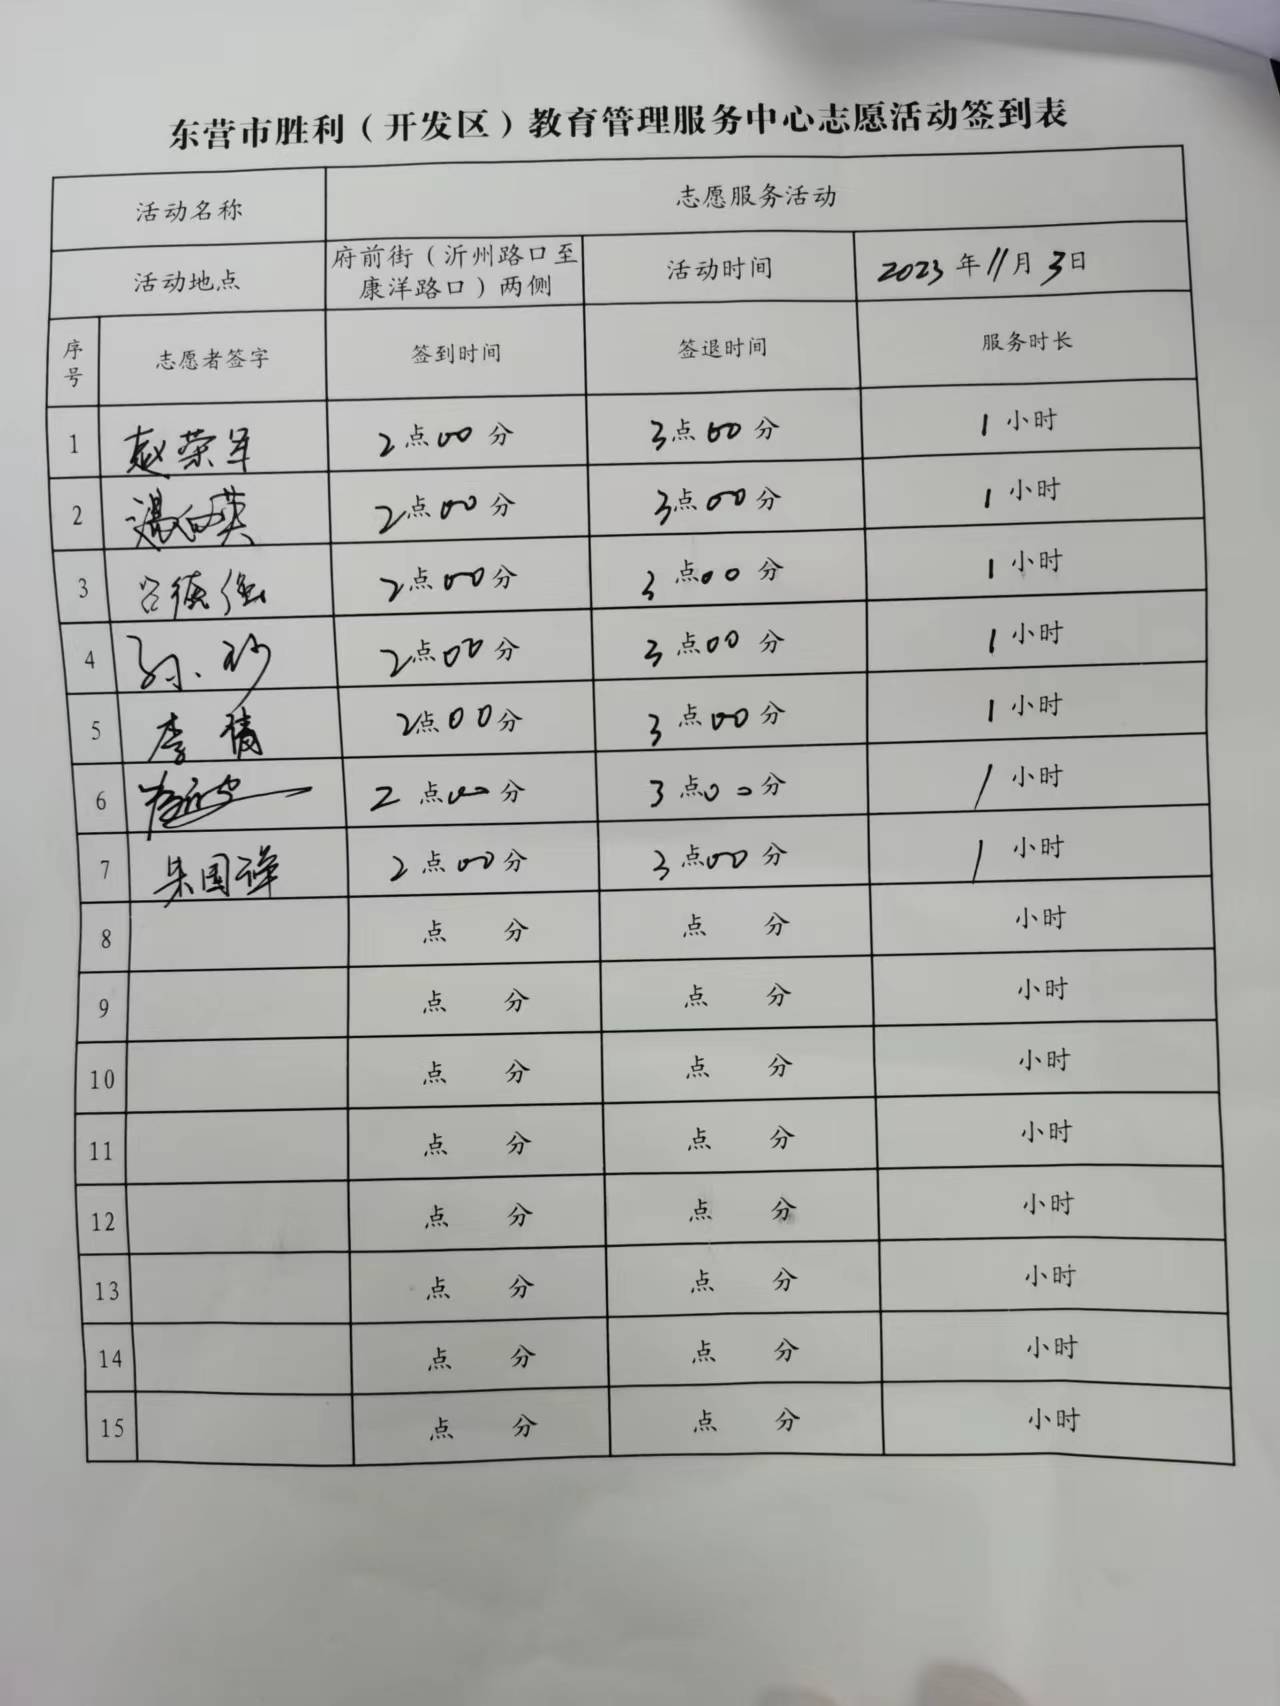 东营市胜利（开发区）教育管理服务中心志愿活动签到表
活动名称 志愿服务活动
活动地点 府前街（沂州路口至康洋路口）两侧 活动时间 2023年11月3日
序号 志愿者签字 签到时间 签退时间 服务时长
1 赵荣军 2点00分 3点00分 1小时
2 2点00分 3点00分 1小时
3 吕德强 2点00分 3点00分 1小时
4 2点00分 3点00分 1小时
5 李倩 2点00分 3点00分 1小时
6 2点00分 3点00分 1小时
7 吴国祥 2点00分 3点00分 1小时
8 点 分 点 分 小时
9 点 分 点 分 小时
10 点 分 点 分 小时
11 点 分 点 分 小时
12 点 分 点 分 小时
13 点 分 点 分 小时
14 点 分 点 分 小时
15 点 分 点 分 小时